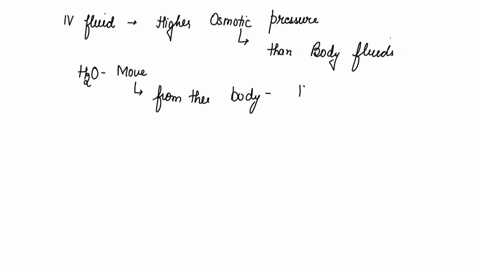 IV fluid → Higher Osmotic pressure
↳ than Body fluids
H2O - Move
↳ from thee body -